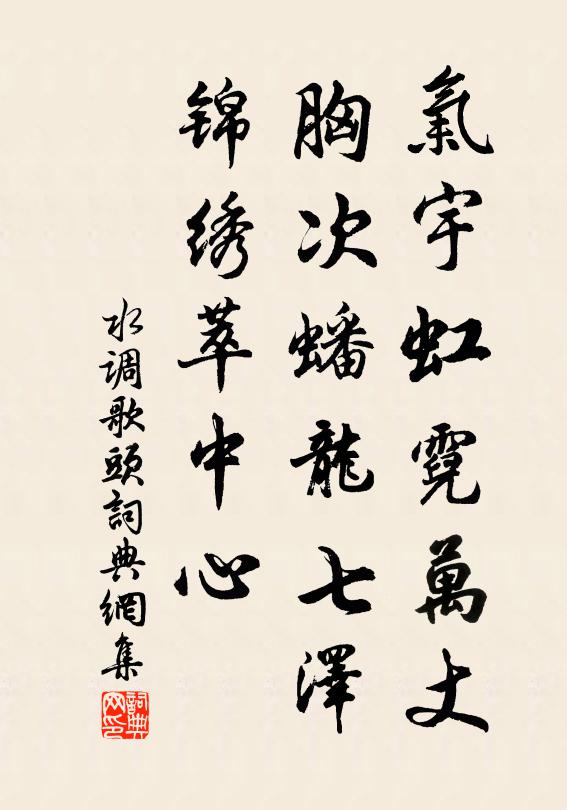 氣宇虹霓萬丈
胸次蟠龍七澤
錦绣萃中心
水调歌頭詞典網集
詞典
网印